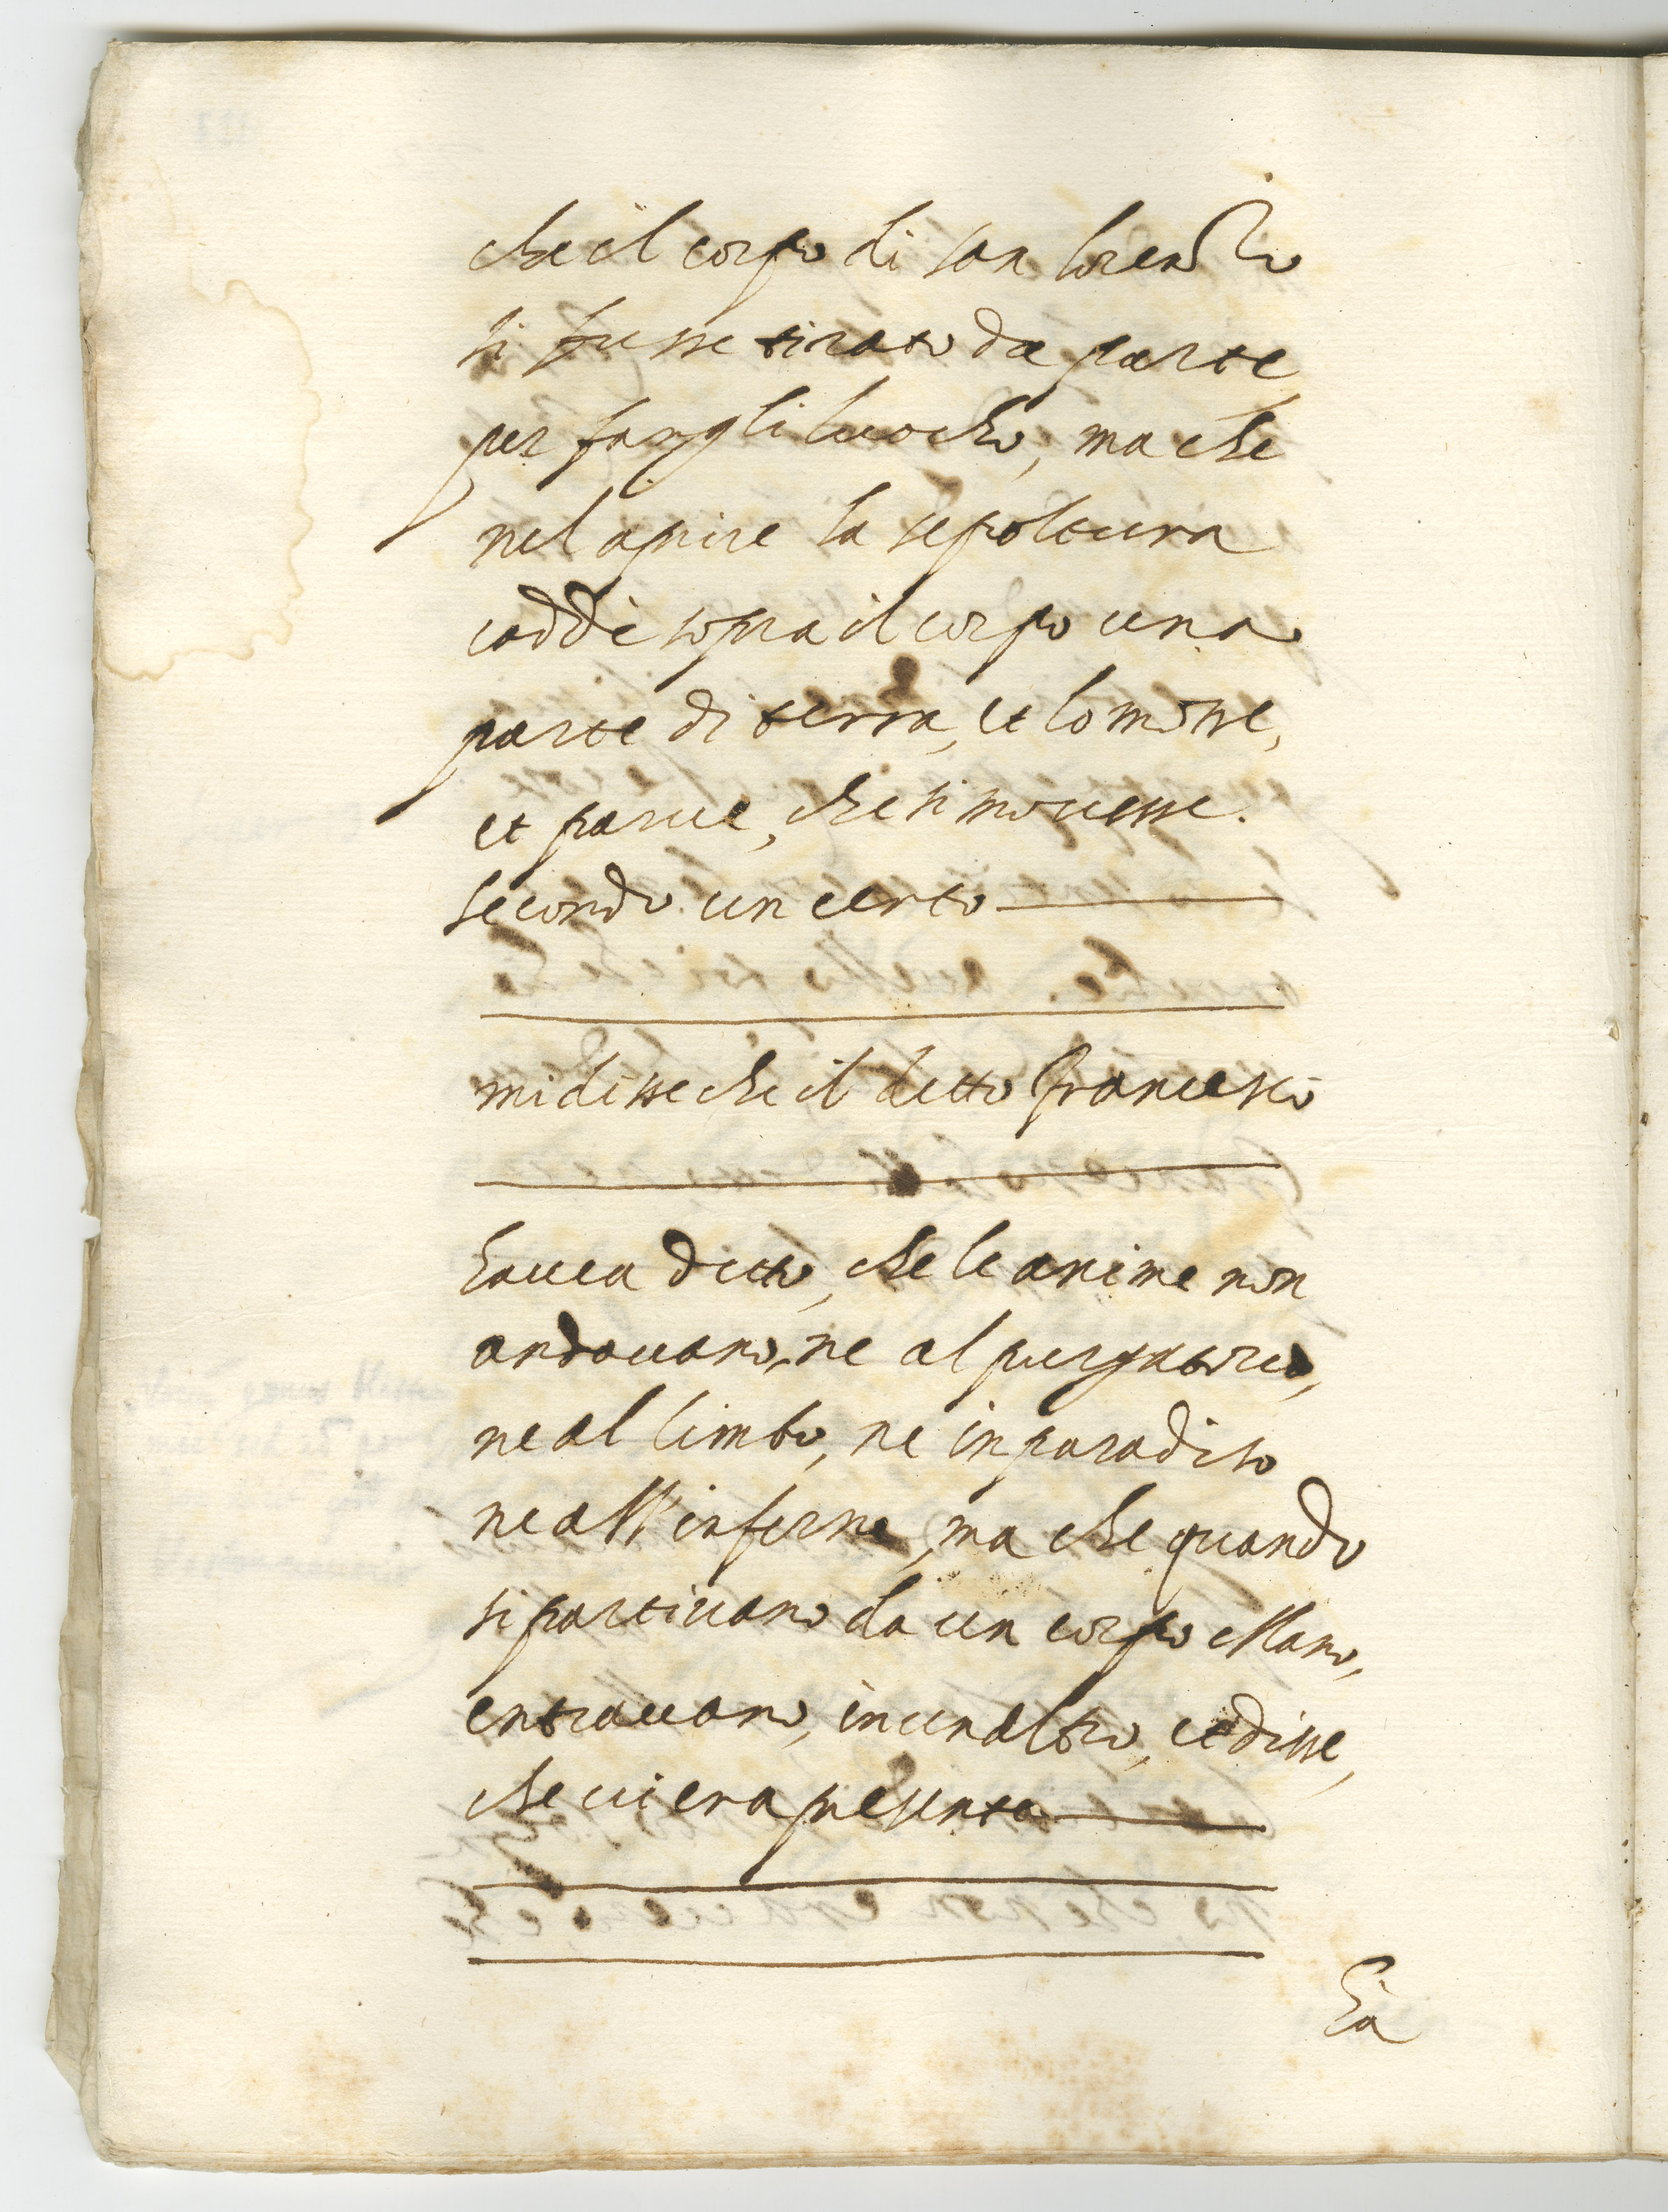 che il corpo di san lorenzo
si fusse tirato da parte
per fargli luocho, ma che
nel aprire la sepoltura
caddè sopra il corpo una
parte di terra, et lo mosse,
et parue, che si mouesse.
secondo un certo
mi disse che il detto Francesco
hauea detto, che le anime non
andauano, ne al purgatorio,
ne al limbo, ne in paradiso
ne all'inferno, ma che quando
si partiuano da un corpo
entrauano, in un altro, et disse,
che ui era presente
Ha